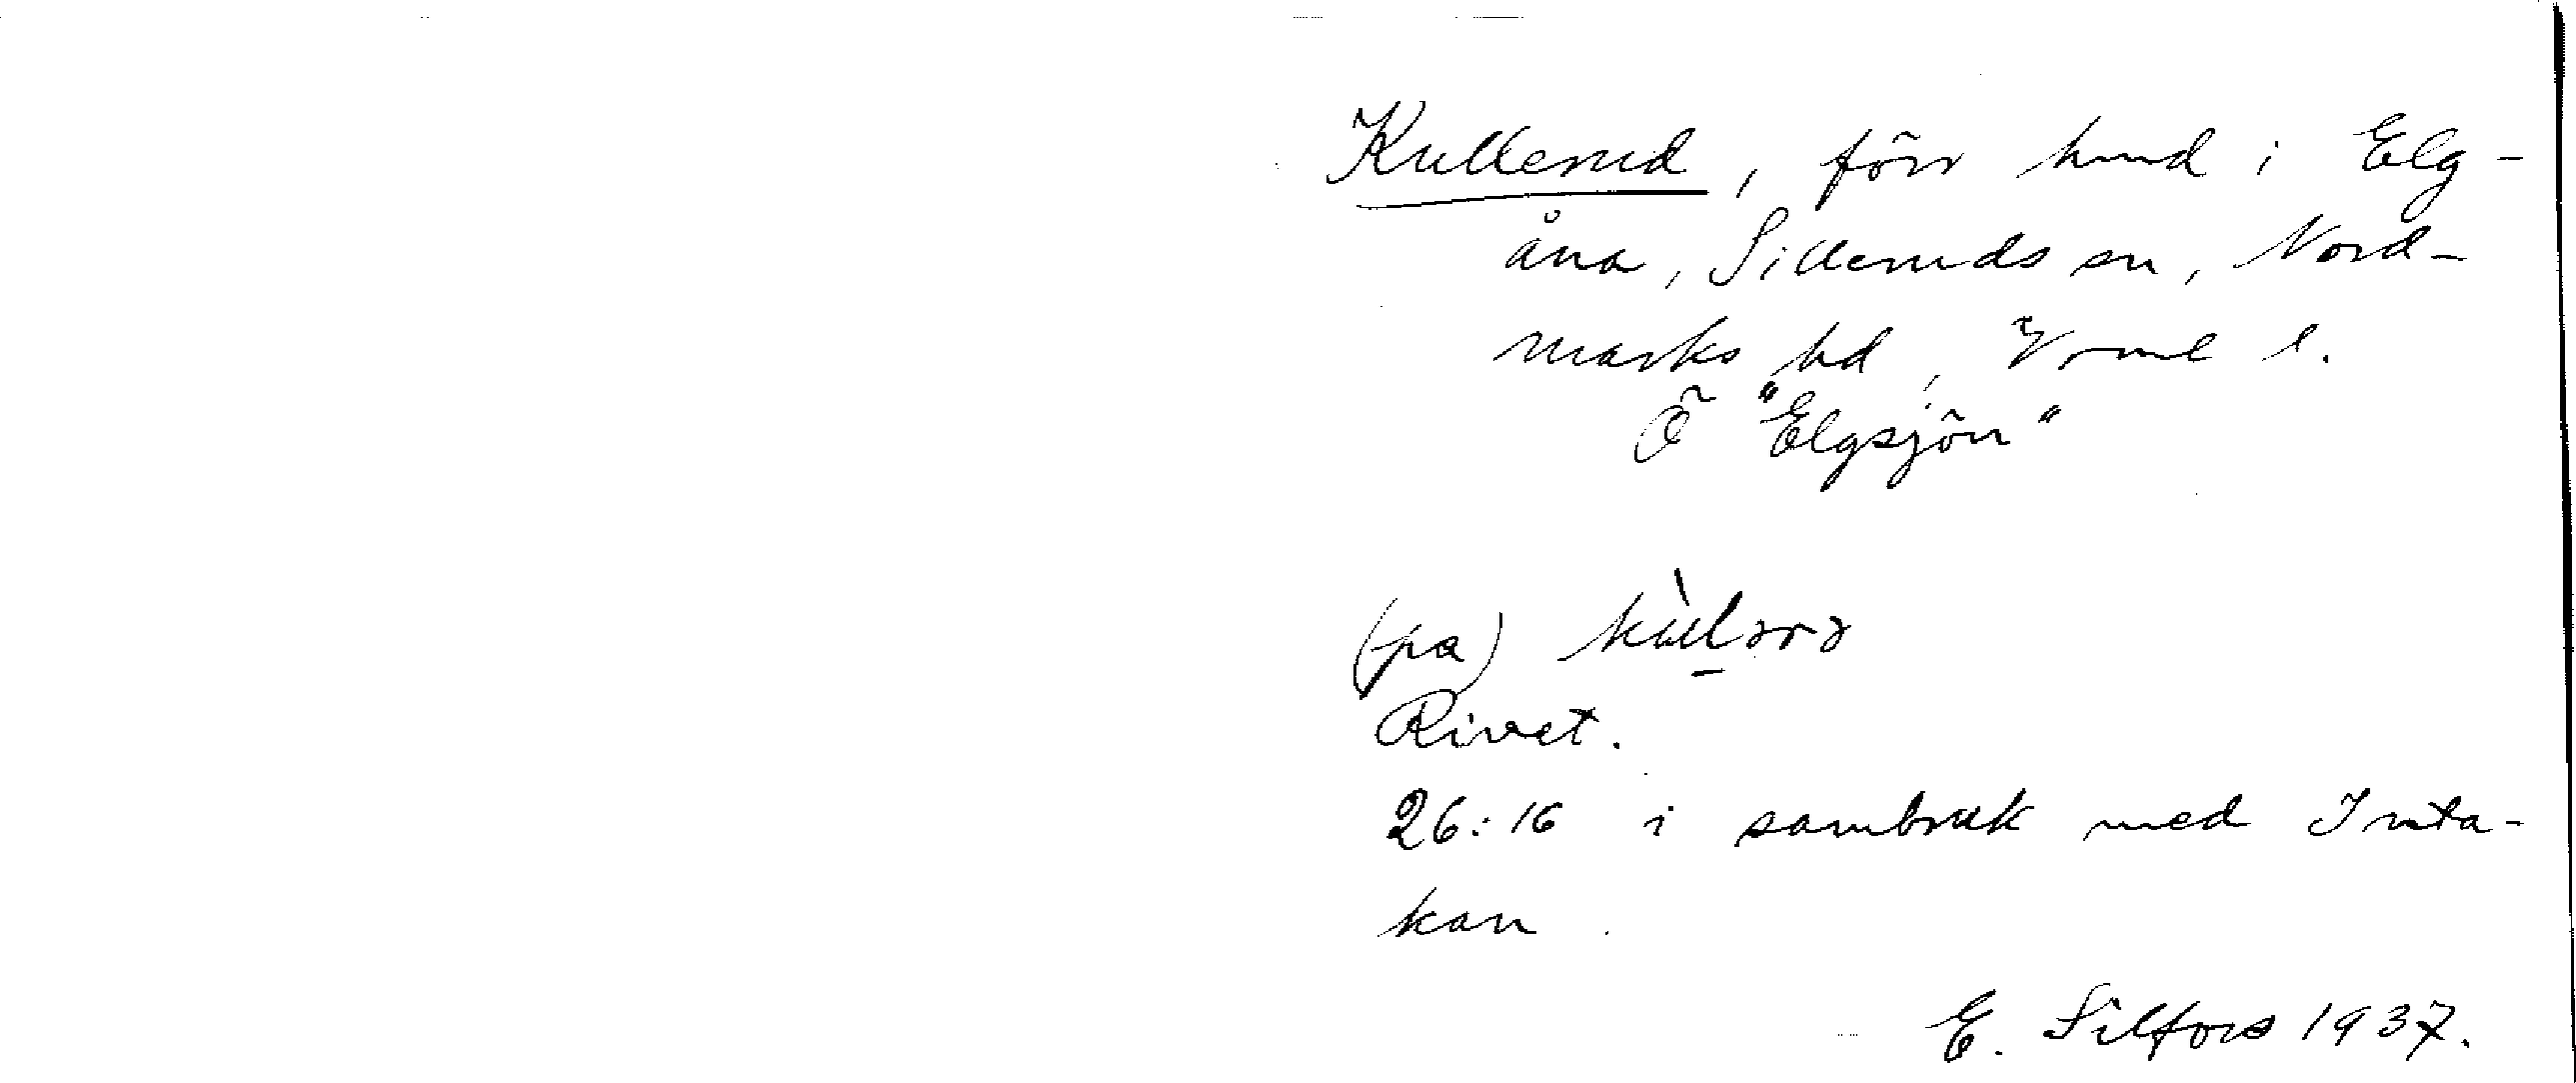 Kullerud, förr hmd i Elg-
åna, Silleruds sn, Nord-
marks hd, Vrml l.
Ö "Elgsjön"
(pa)
Rivet.
26:16 i sambruk med Inta-
kan.
E. Silfors 1937.